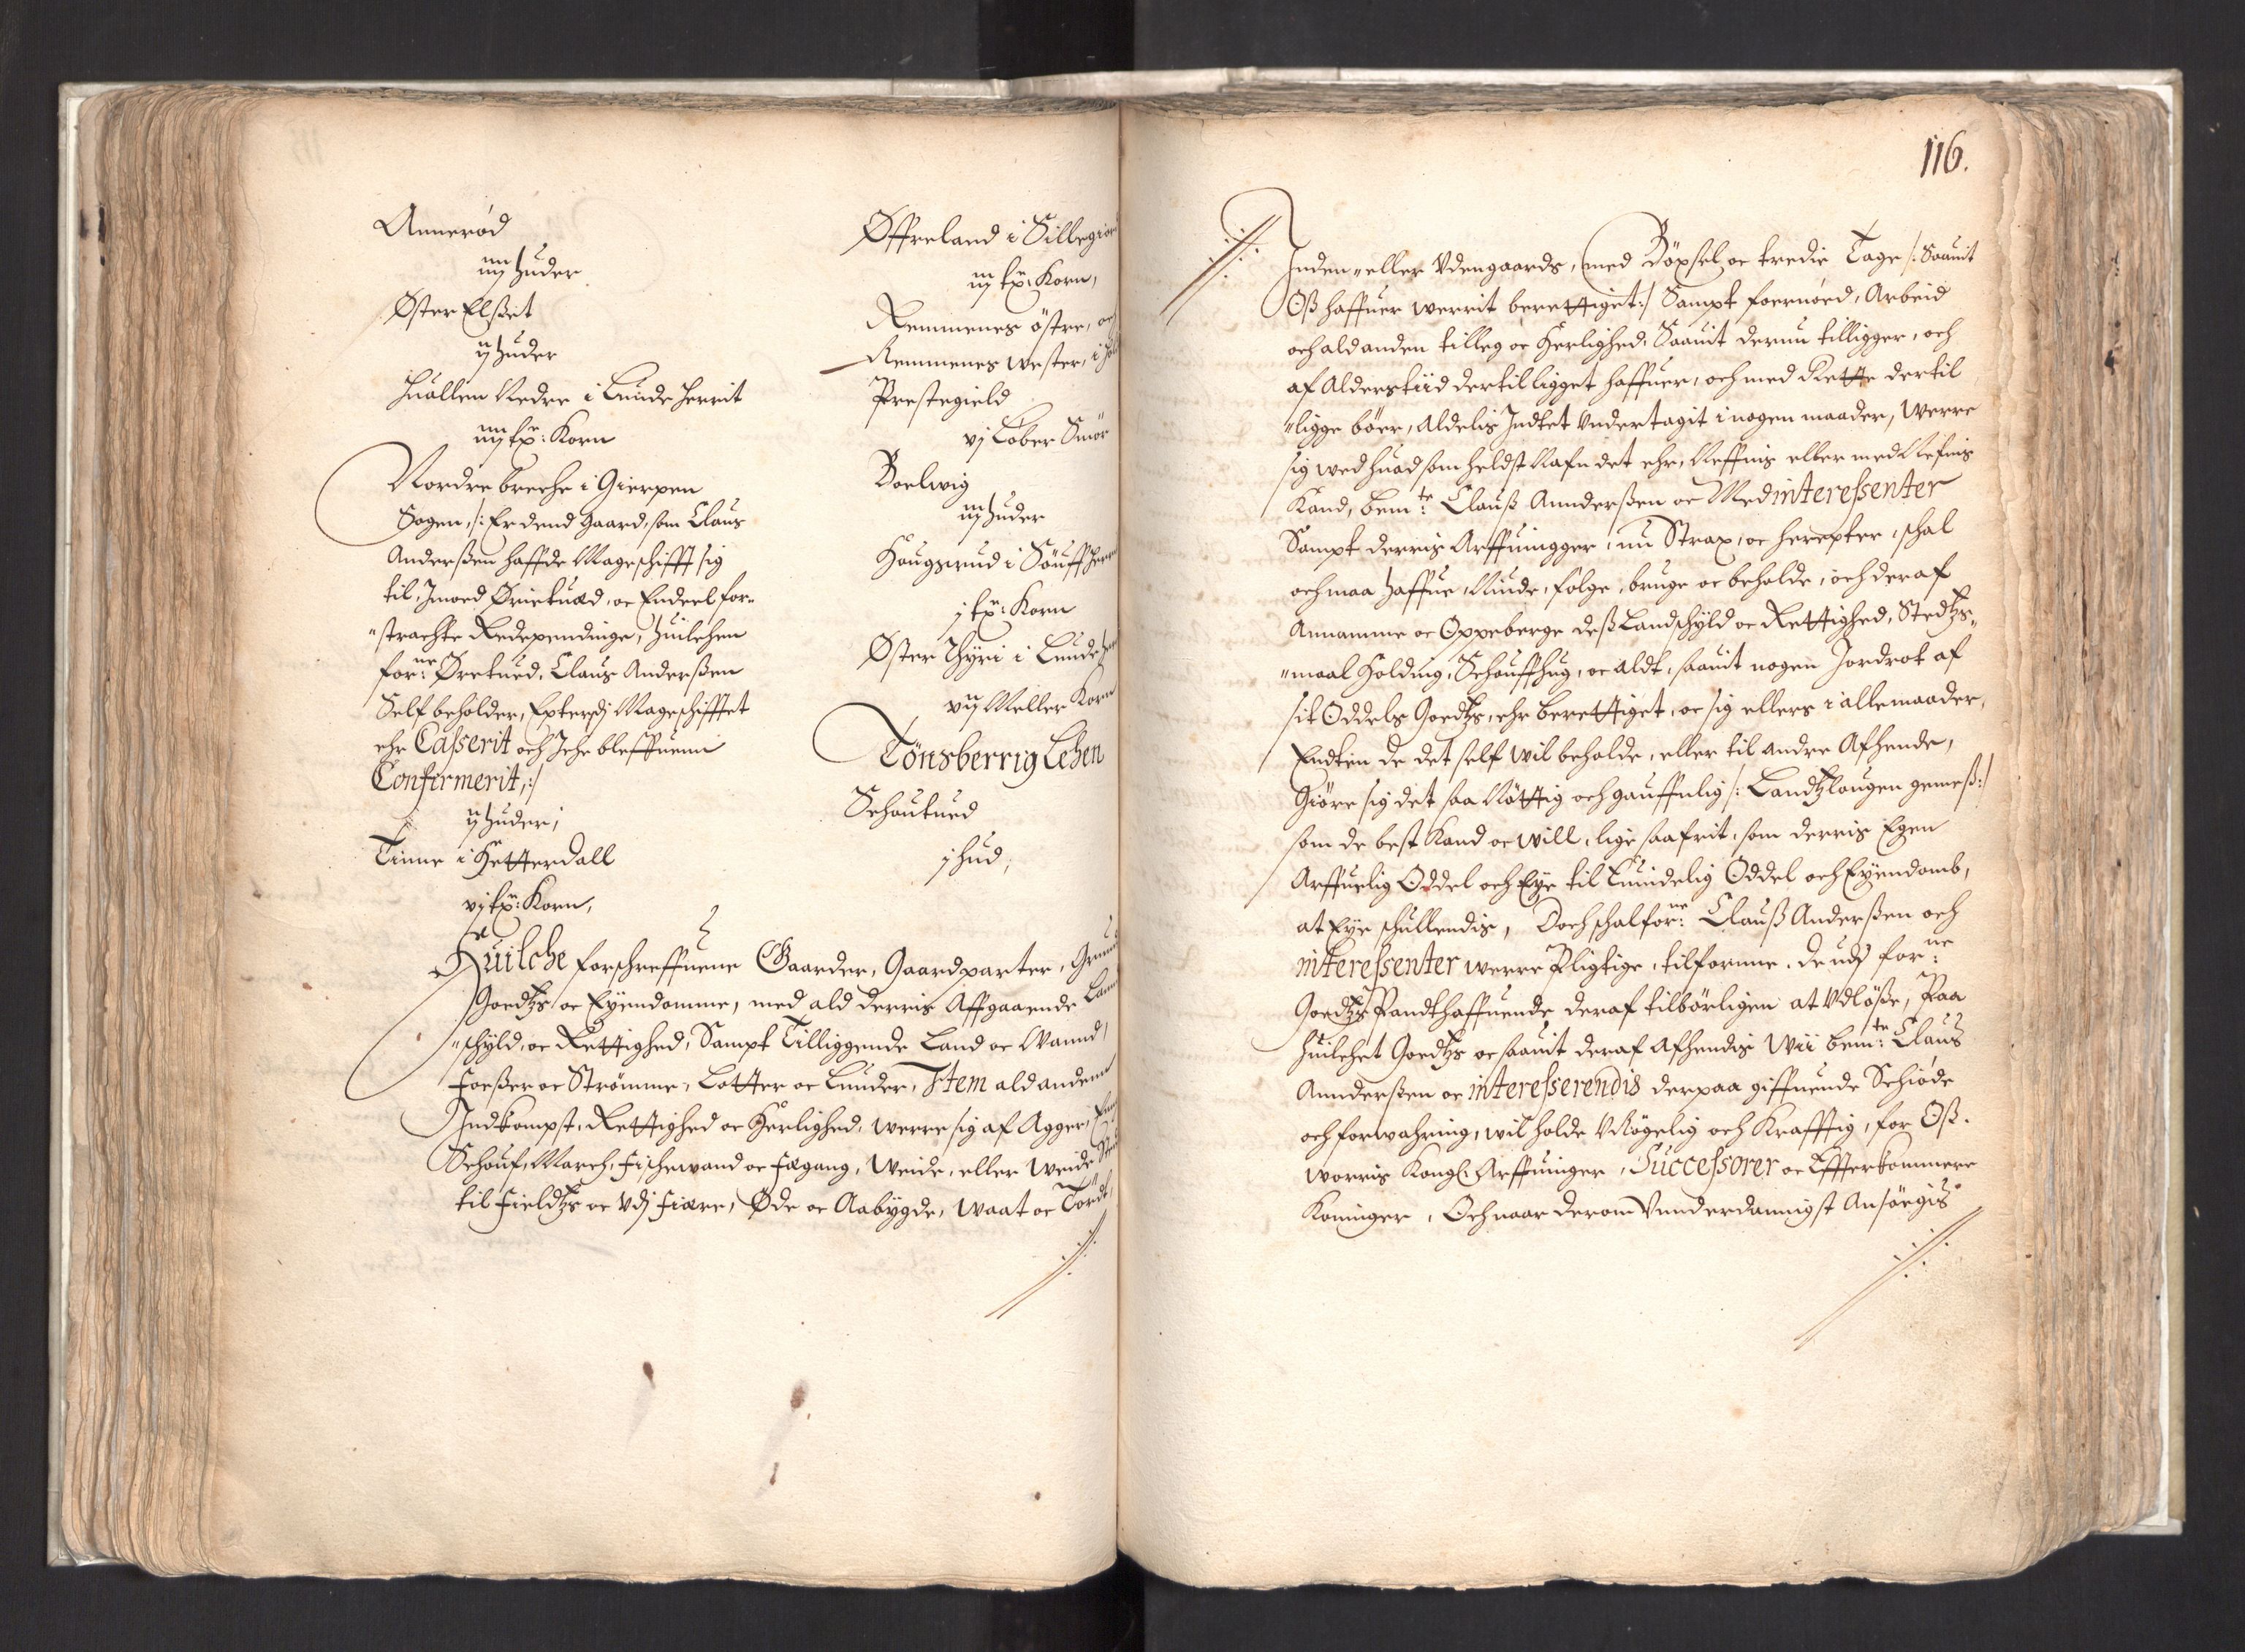 Annerød
iiij huder
Øster Elset
ij huder
Huallen Nedre i Lunde herrit
iiij sp: Korn
Nordre breche i Gierpen
Sogen, /: Er dend gaard, som Claus
Anderßen hafde Mageschifft sig
til, Imoed Ørietued, oc Endeel for-
"strachte Redependinge, huilchen
for:ne Øretued, Claus Anderßen
Self beholder, Efterdj Mageschifftet
ehr Casserit och Iche bleffuenn
Confirmerit, :/
ij huder,
Tinne i Hetterdall
vj sp: Korn,
Øffreland i Sillegior
iij sp: Korn,
Remmenes østre, oc
Remmenes wester, i
Prestegield
vj Løber Smør
Boelwig
iij huder
Haugerud i Souffherr
j sp: Korn
Øster Thyri i Lunde
vij Meller Korn
Tönsberrig Lehen
Schoutued
j hud,
Huilche forschreffuene Gaarder, Gaardparter, Grund
Goedtzs oc Eyendomme, med ald derris Affgaaende Land
"schyld, oc Rettighed, Sampt Tilliggende Land oc Wannd,
Foeßer oc Strömme, Lotter oc Lunder, Item ald anden
Indkompst, Rettighed oc Herlighed, werre sig af Agger, Eng
Schouf, March, Fischewand oc Fægang, Weide, eller Weide Sted
til Fieldtzs oc Vdj Fiære, Øde oc Aabygde, Waat oc Tørdt,
116.
Inden- eller Vdengaards, med Böxsel oc tredie Tage /: Saauit
Oß haffuer werrit berettiget :/ Sampt foernöed, Arbeid
och ald anden tilleg oc Herlighed, Saauit derun tilligger, och
af Alderstiid dertil ligget haffuer, och med Rette dertil
"ligge böer, Aldelis Indtet Vndertagit i nogen maader, Werre
sig wed huad som heldst Nafn det ehr, Neffnis eller med Nefnis
Kand, bem:te Clauß Annderßen oc Medinteressenter
Sampt derris Arffuingger, nu Strax, oc herepter, schal
och maa haffue, Niude, følge, bruge oc beholde, och deraf
Annamme oc Oppeberge deß Landschyld oc Rettighed, Stedtzs-
"maal Holding, Schouffhug, oc aldt, saauit nogen Jordrot af
sit Oddels Goedtzs, ehr berettiget, oc sig ellers i alle maader,
Endten de det self wil beholde, eller til andre Afhende,
Giöre sig det saa Nöttig och gauffnlig /: Landtzlougen gemeß :/
som de best Kand oc will, lige saa frit, som derris Egen
Arffuelig Oddel och Eye til Euindelig Oddel och Eyendomb,
at Eye schullendis, Doch schal for:ne Clauß Anderßen och
interessenter werre Pligtige, tilforne, de udj for:ne
Goedtzs Pandthaffuende deraf tilbörligen at Vdlöße, Paa
huilchet Goedtzs oc saauit deraf Afhendis Wii bem:te Claus
Annderßen oc interesserendis derpaa giffuende Schiøde
och forwahring, wil holde VRögelig och Krafftig, for Oß.
worris Kongl: Arffuinger, Successorer oc Effterkommere
Koninger, Och naar derom Vnnderdannigst Ansøegis